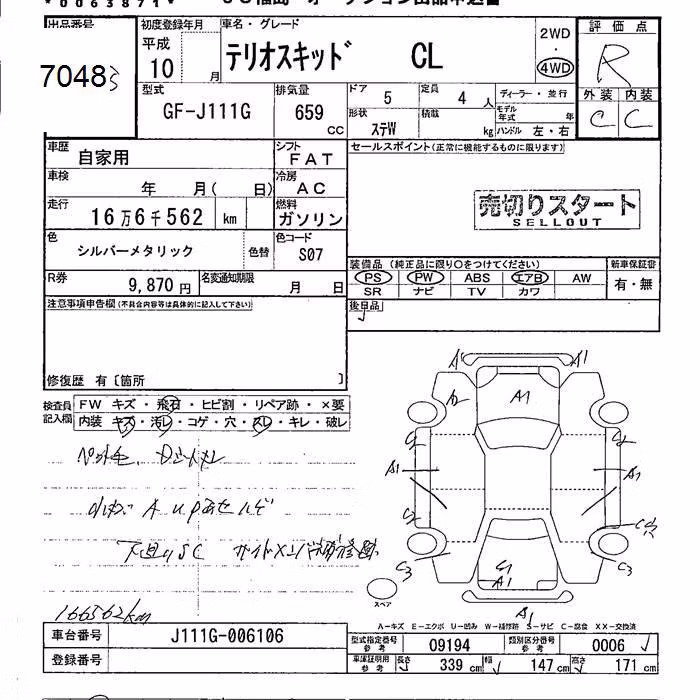 *0063871*
出品番号
70483
初度登録年月
平成
10 月
車名・グレード
テリオスキッド CL
2WD
4WD
評価点
R
外装 内装
C C
型式
GF-J111G
排気量
659
CC
ドア 5
定員 4 人
形状 ステW
積載 kg
ディーラー・並行
モデル年式 年
ハンドル 左・右
車歴
自家用
シフト
FAT
セールスポイント(正常に機能するものに限ります)
車検
年 月( 日)
冷房
AC
売切りスタート
SELLOUT
走行
16万6千562 km
燃料
ガソリン
色
シルバーメタリック
色替
色コード
S07
装備品(純正品に限り○をつけてください)
新車保証書
PS PW ABS エアB AW
SR ナビ TV カワ
有・無
R券
9,870円
名変通知期限
月 日
後日品
注意事項申告欄(不具合内容等は具体的に記入して下さい)
修復歴 有〔箇所 〕
検査員記入欄
FW キズ・飛石・ヒビ割・リペア跡・×要
内装 キズ・汚レ・コゲ・穴・スレ・キレ・破レ
下廻りSC
166562km
A1 A1
A1
A1 A1
C2
C2
C3 C3
C1
A1
A1
スペア
A-キズ E-エクボ U-凹み W-補修跡 S-サビ C-腐食 XX-交換済
車台番号
J111G-006106
登録番号
型式指定番号 参考
09194
類別区分番号 参考
0006
車庫証明用 参考
長さ 339 cm
幅 147 cm
高さ 171 cm